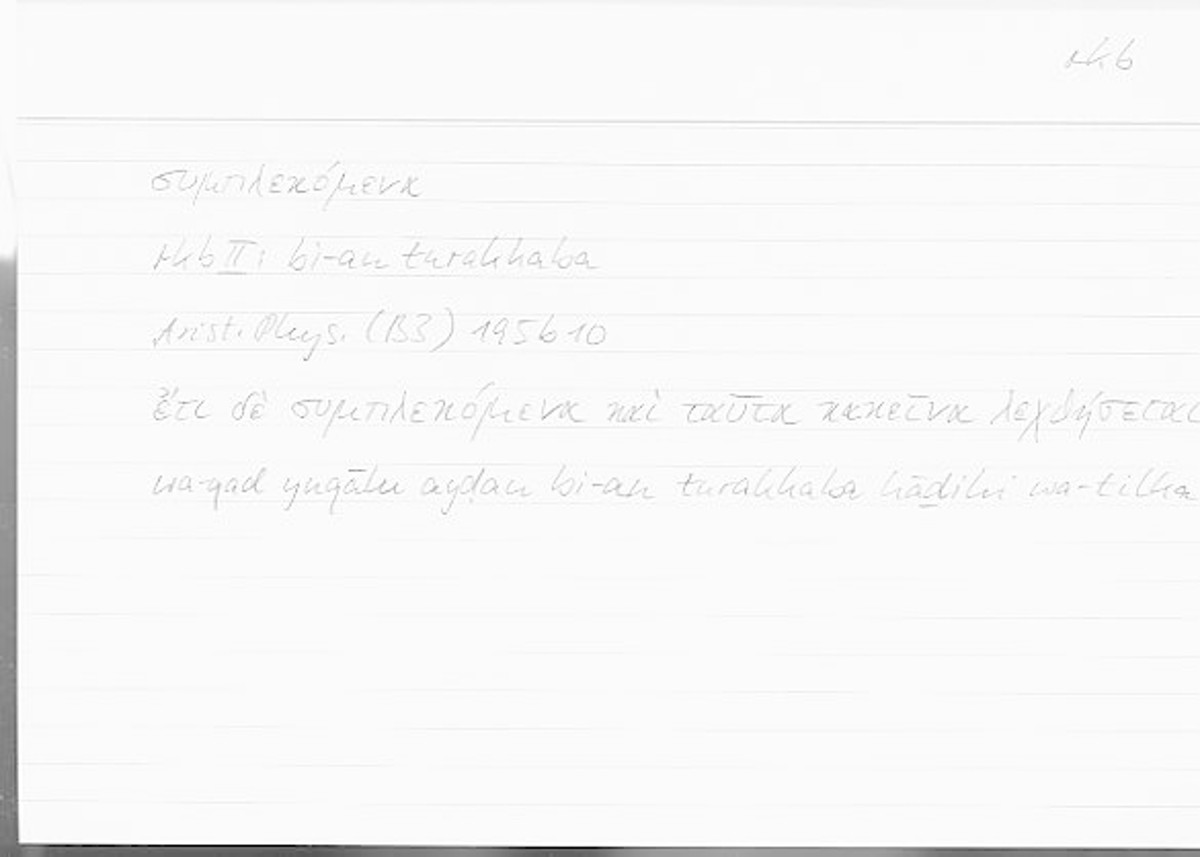 rkb
συμπλεκόμενα
rkb II: bi-an turakkaba
Arist. Phys. (B3) 195b10
ἔτι δὲ συμπλεκόμενα καὶ ταῦτα κακεῖνα λεχθήσεται
wa-qad yuqālu ayḍan bi-an turakkaba hāḏihi wa-tilka